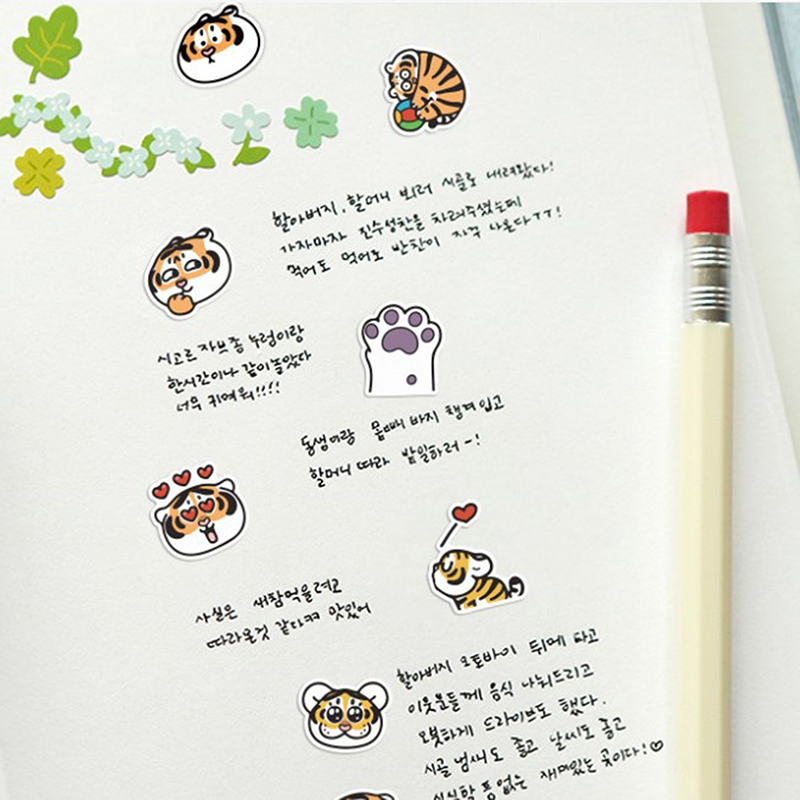 할아버지, 할머니 뵈러 시골로 내려왔다!
가자마자 진수성찬을 차려주셨는데
먹어도 먹어도 반찬이 자꾸 나온다ㅜㅜ!
시고르자브종 누렁이랑
한시간이나 같이놀았다
너무 귀여워!!!!
동생이랑 몸빼바지 챙겨입고
할머니 따라 밭일하러~!
사실은 새참먹을려고
따라온것 같다ㅋㅋ 맛있어
할아버지 오토바이 뒤에 타고
이웃분들께 음식 나눠드리고
오붓하게 드라이브도 했다.
시골 냄새도 좋고 날씨도 좋고
재미있는 곳이다!♡